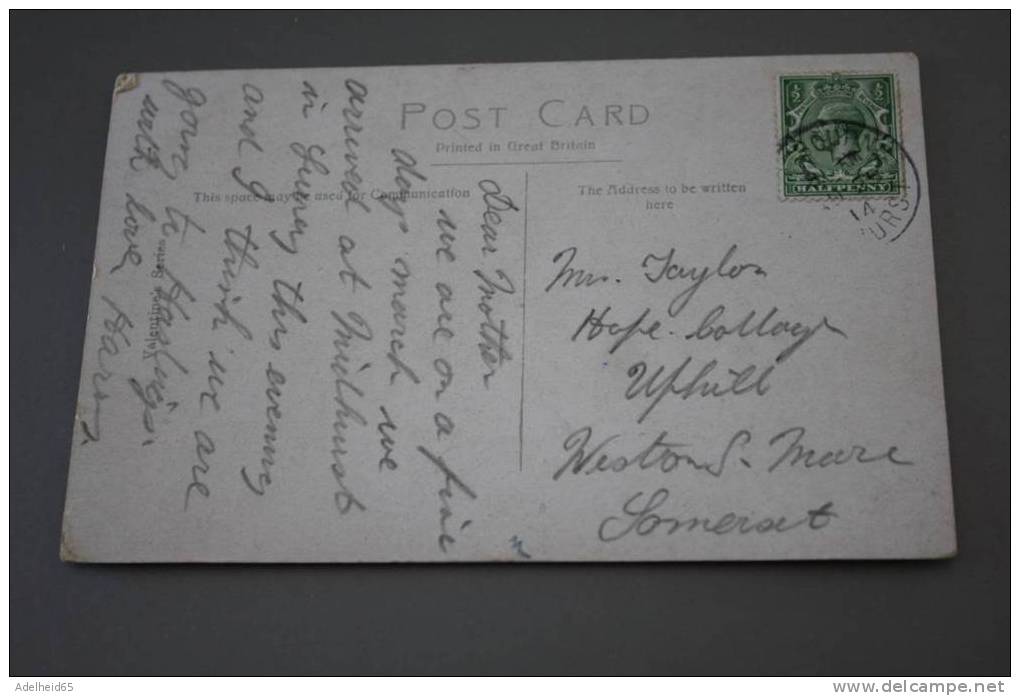 POST CARD
Printed in Great Britain
This space may be used for Communication
The Address to be written
here
HALFPENNY
14
Dear Mother
we are on a five
days march we
arrived at Midhurst
in Surrey this evening
and I think we are
going to Hastings.
with love, Harry
Valentines Series
Mrs. Taylor
Hope Cottage
Uphill
Weston S. Mare
Somerset
Adelheid65
www.delcampe.net